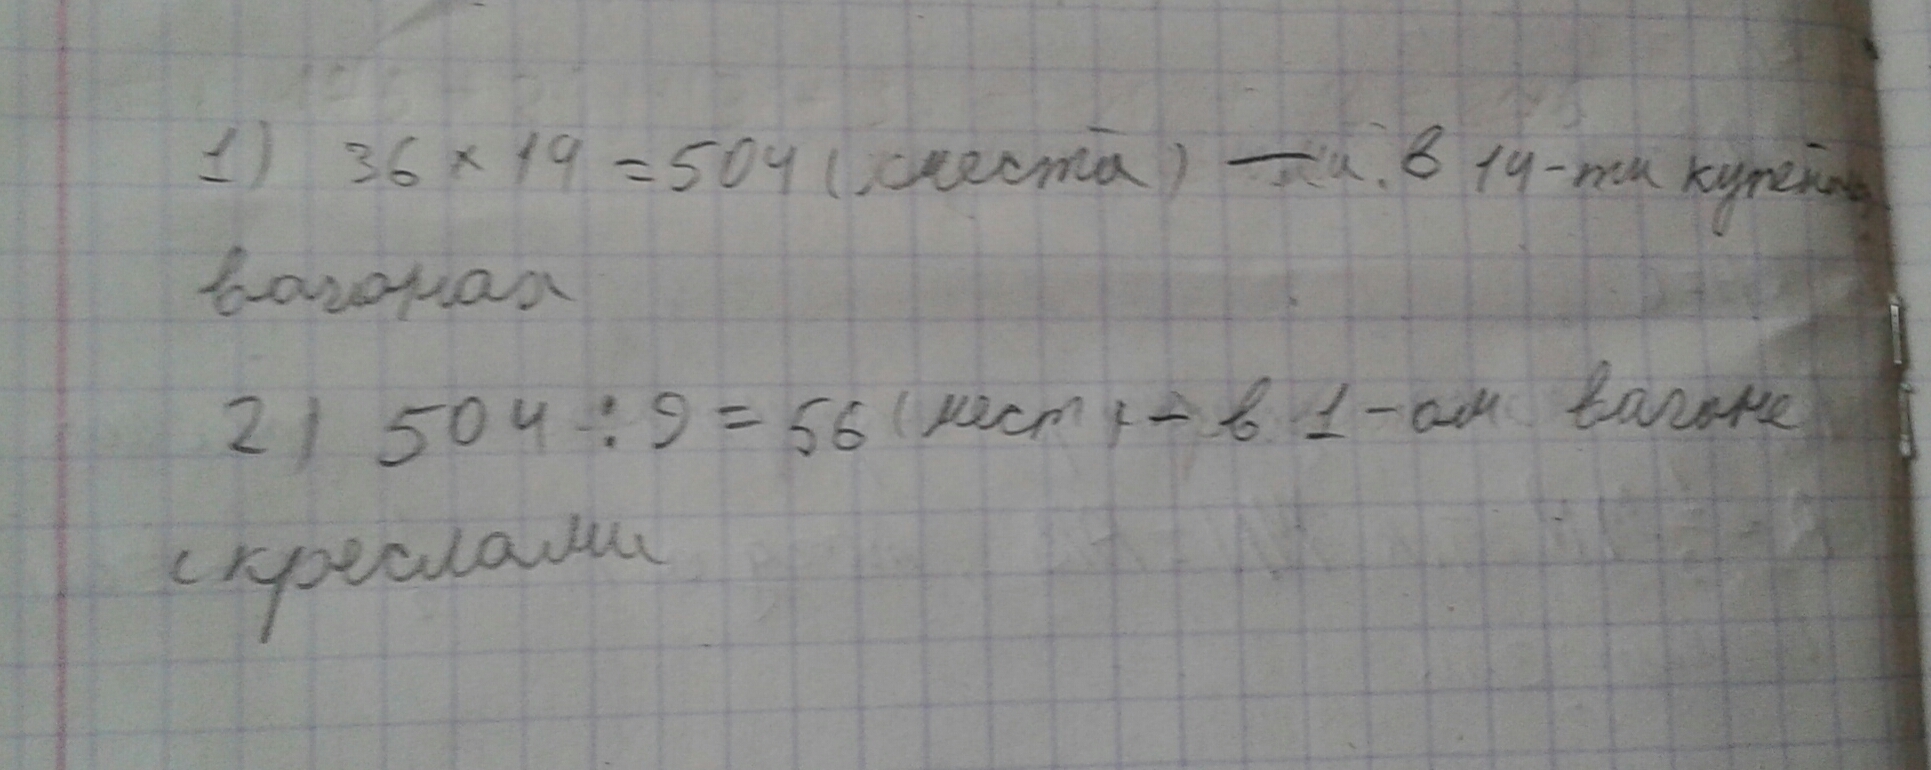 1) 36 × 14 = 504 (места) — в 14-ти купейных
вагонах
2) 504 : 9 = 56 (мест) - в 1-ом вагоне
с креслами